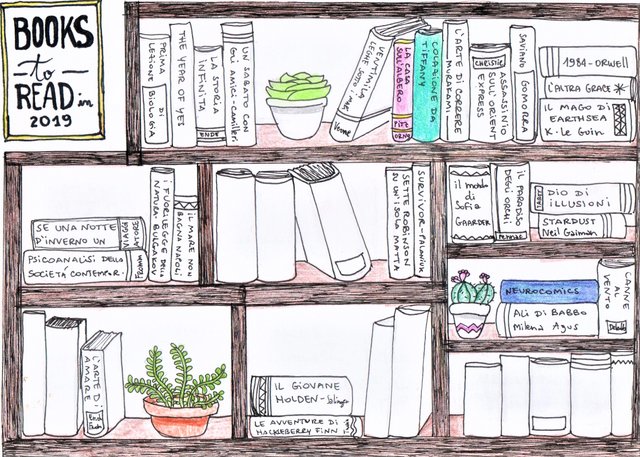 BOOKS
to
READ in
2019
PRIMA
LEZIONE DI
BIOLOGIA
THE YEAR OF YES
LA STORIA
INFINITA
ENDE
UN SABATO CON
GLI AMICI - Camilleri
VENTIMILA
LEGHE SOTTO I MARI
Verne
LA CASA
SULL'ALBERO
PITZ
ORNO
COLAZIONE DA
TIFFANY
L'ARTE DI CORRERE
MURAKAMI
CHRISTIE
ASSASSINIO
SULL'ORIENT
EXPRESS
SAVIANO
GOMORRA
1984 - ORWELL
L'ALTRA GRACE
IL MAGO DI
EARTHSEA
K. Le Guin
SE UNA NOTTE
D'INVERNO UN
VIAGG
PSICOANALISI DELLA
SOCIETÀ CONTEMPOR.
FROMM
I FUORILEGGE DELLA
NATURA - BULGAKOV
IL MARE NON
BAGNA NAPOLI
SETTE ROBINSON
SU UN'ISOLA MATTA
SURVIVOR - PALANIUK
il mondo
di
Sofia
GAARDER
IL PARADISO
DEGLI ORCHI
PENNAC
DIO DI
ILLUSIONI
STARDUST
Neil Gaiman
NEUROCOMICS
ALI DI BABBO
Milena Agus
CANNE
AL
VENTO
Deledda
L'ARTE DI
AMARE
IL GIOVANE
HOLDEN - Salinger
LE AVVENTURE DI
HACKLEBERRY FINN